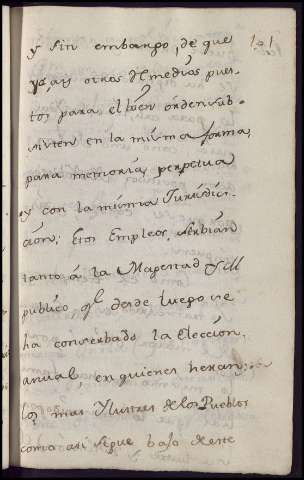 y sin embargo, de que 101
ya, ay otros Remedios pues-
tos para el buen órden sub-
sisten en la misma forma,
para memoria perpetua
y con la misma Jurisdic-
cion; Estos Empleos, serbian
tanto á la Magestad y all
publico, ql desde luego se
ha conserbado la Eleccion
anual, en quienes heran
los mas Ylustres de los Pueblos
como asi sigue bajo de este